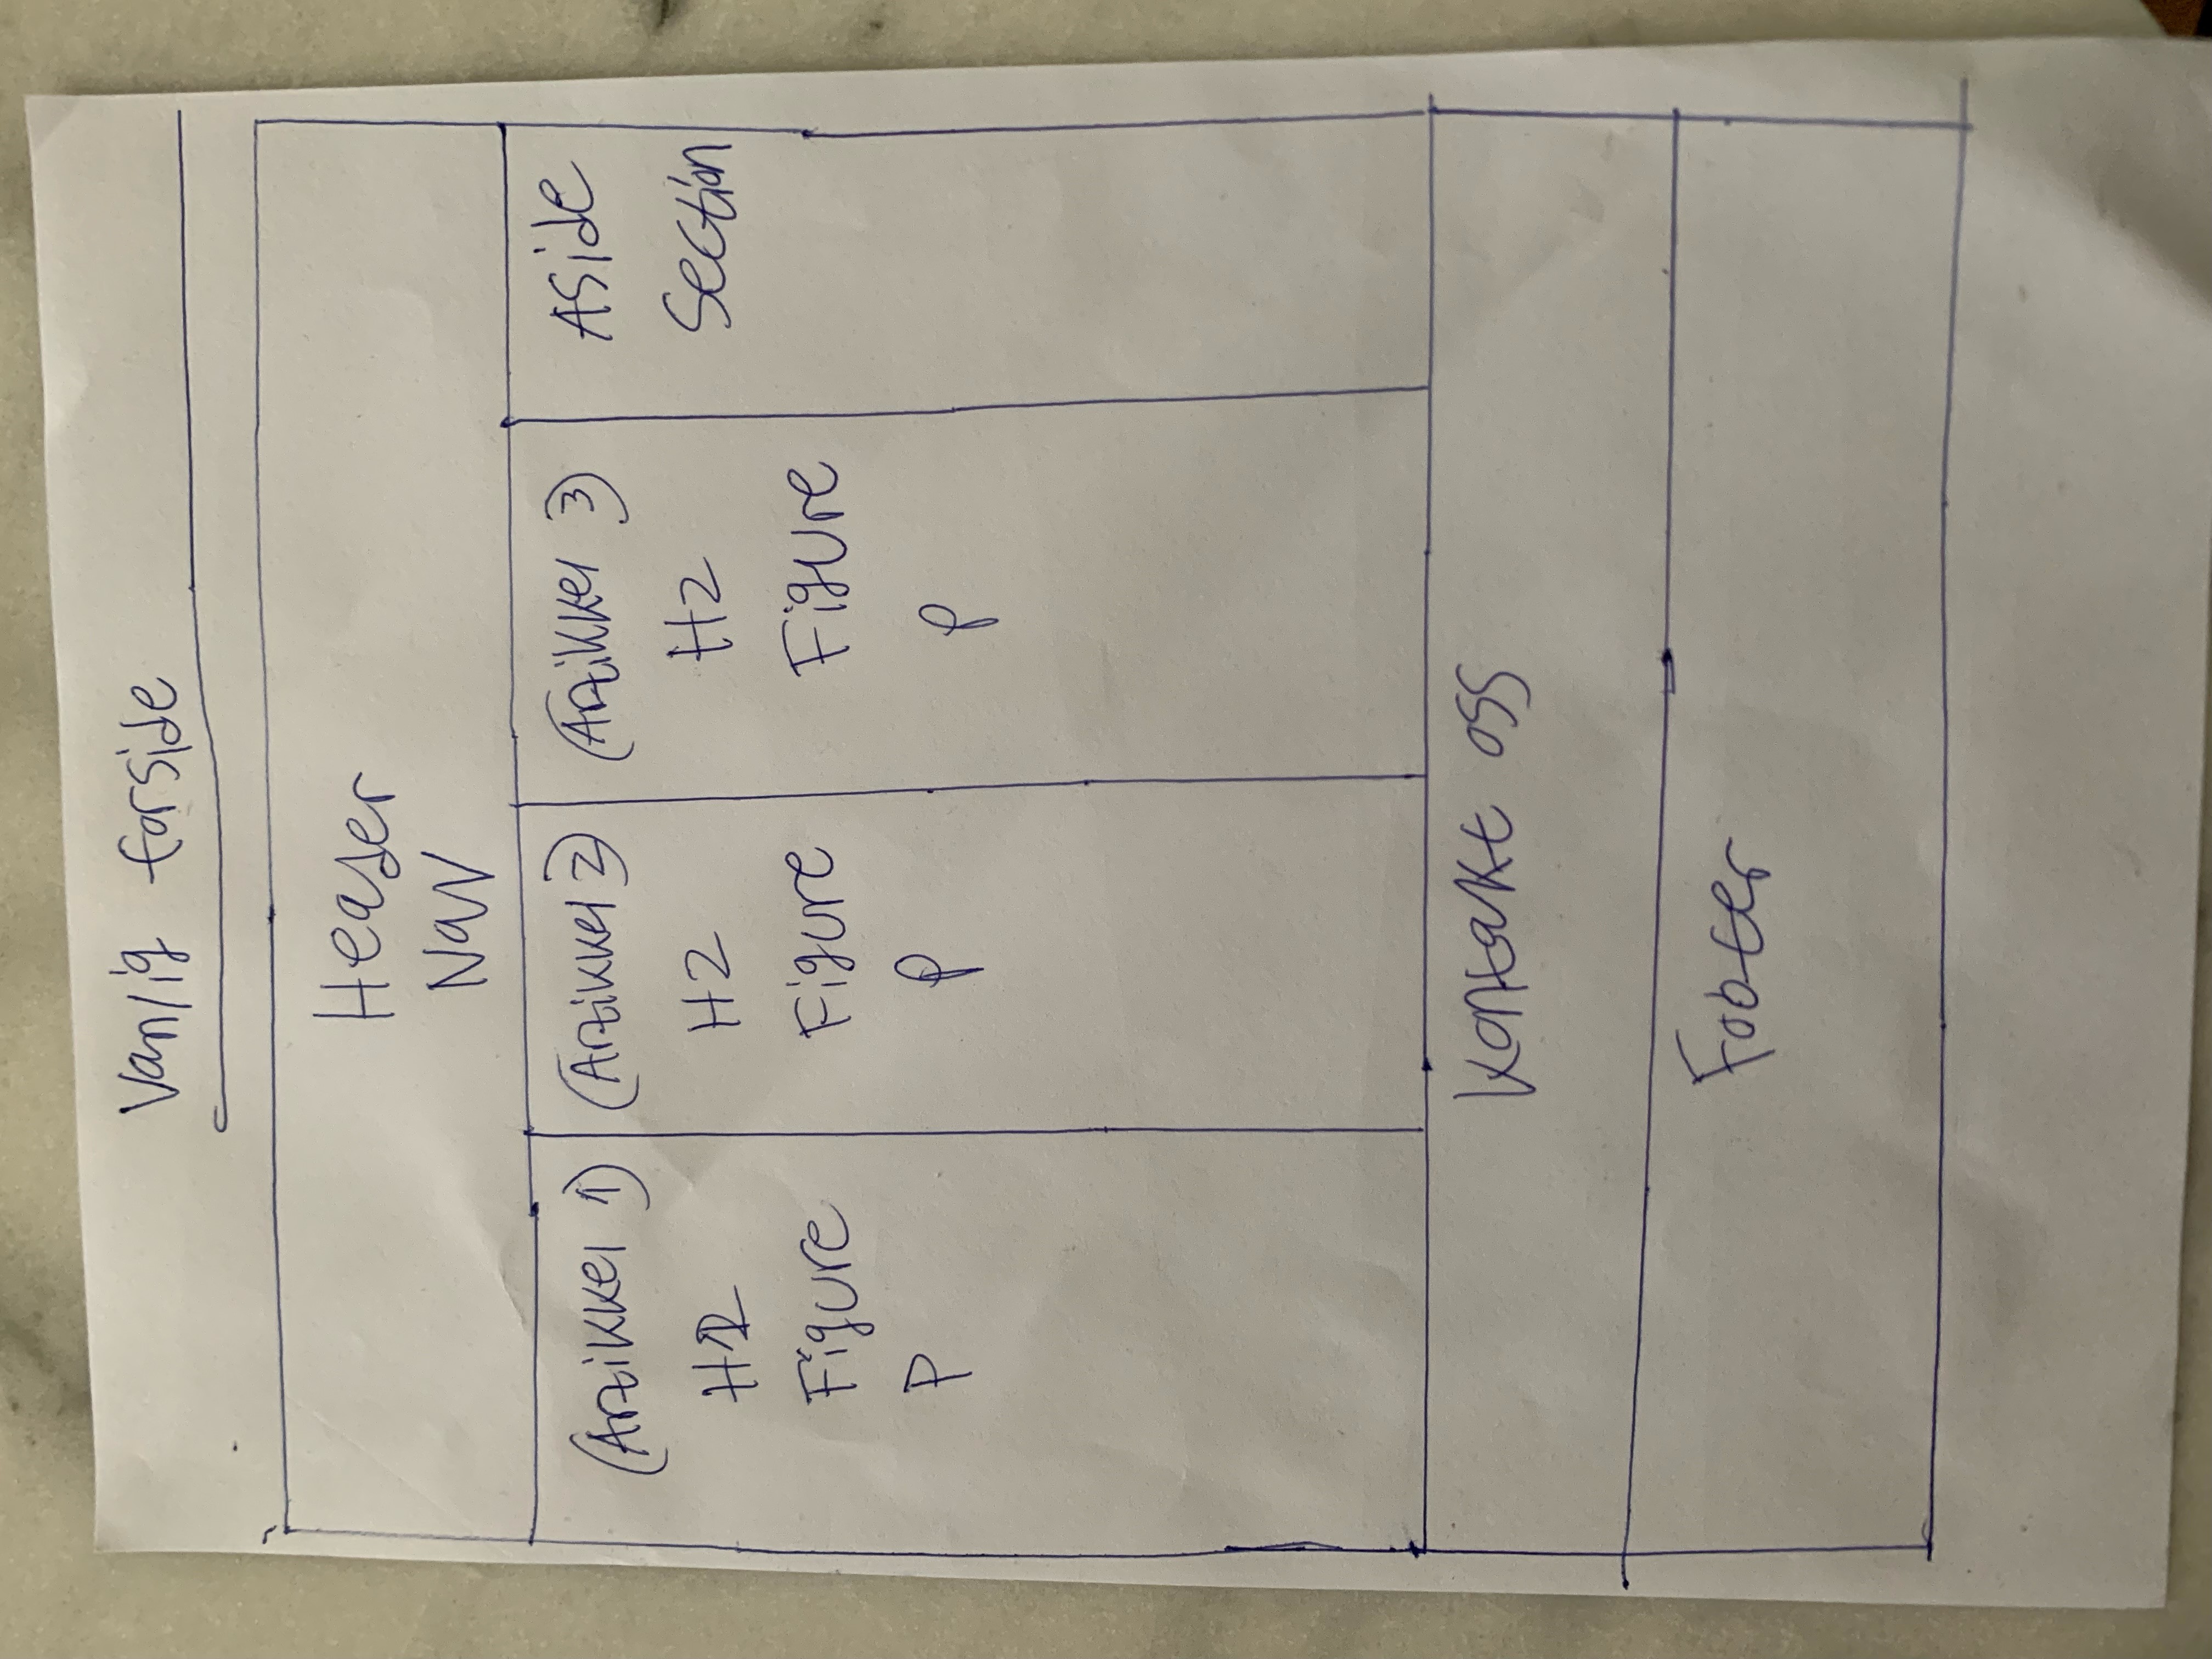 Vanlig forside
Header
Nav
(Artikkel 1)
H2
Figure
P
(Artikkel 2)
H2
Figure
P
(Artikkel 3)
H2
Figure
P
Aside
Section
Kontakt oss
Footer